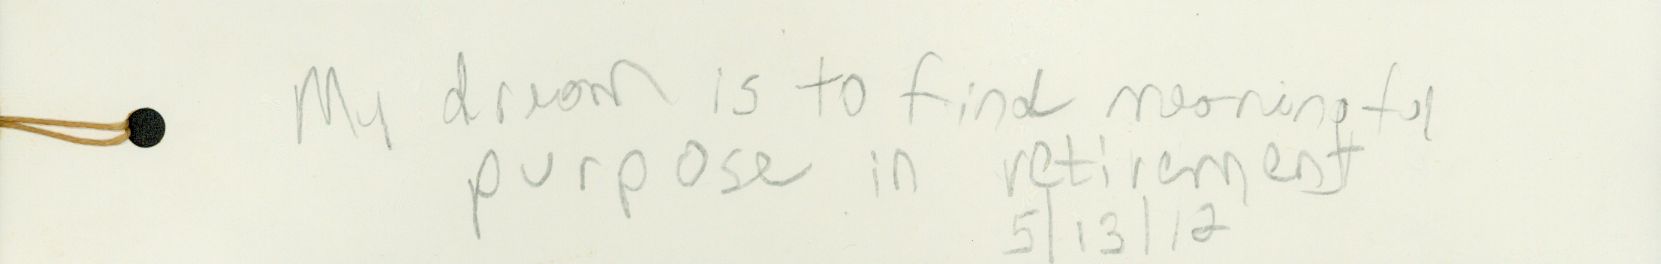 My dream is to find meaningful
purpose in retirement
5/13/12